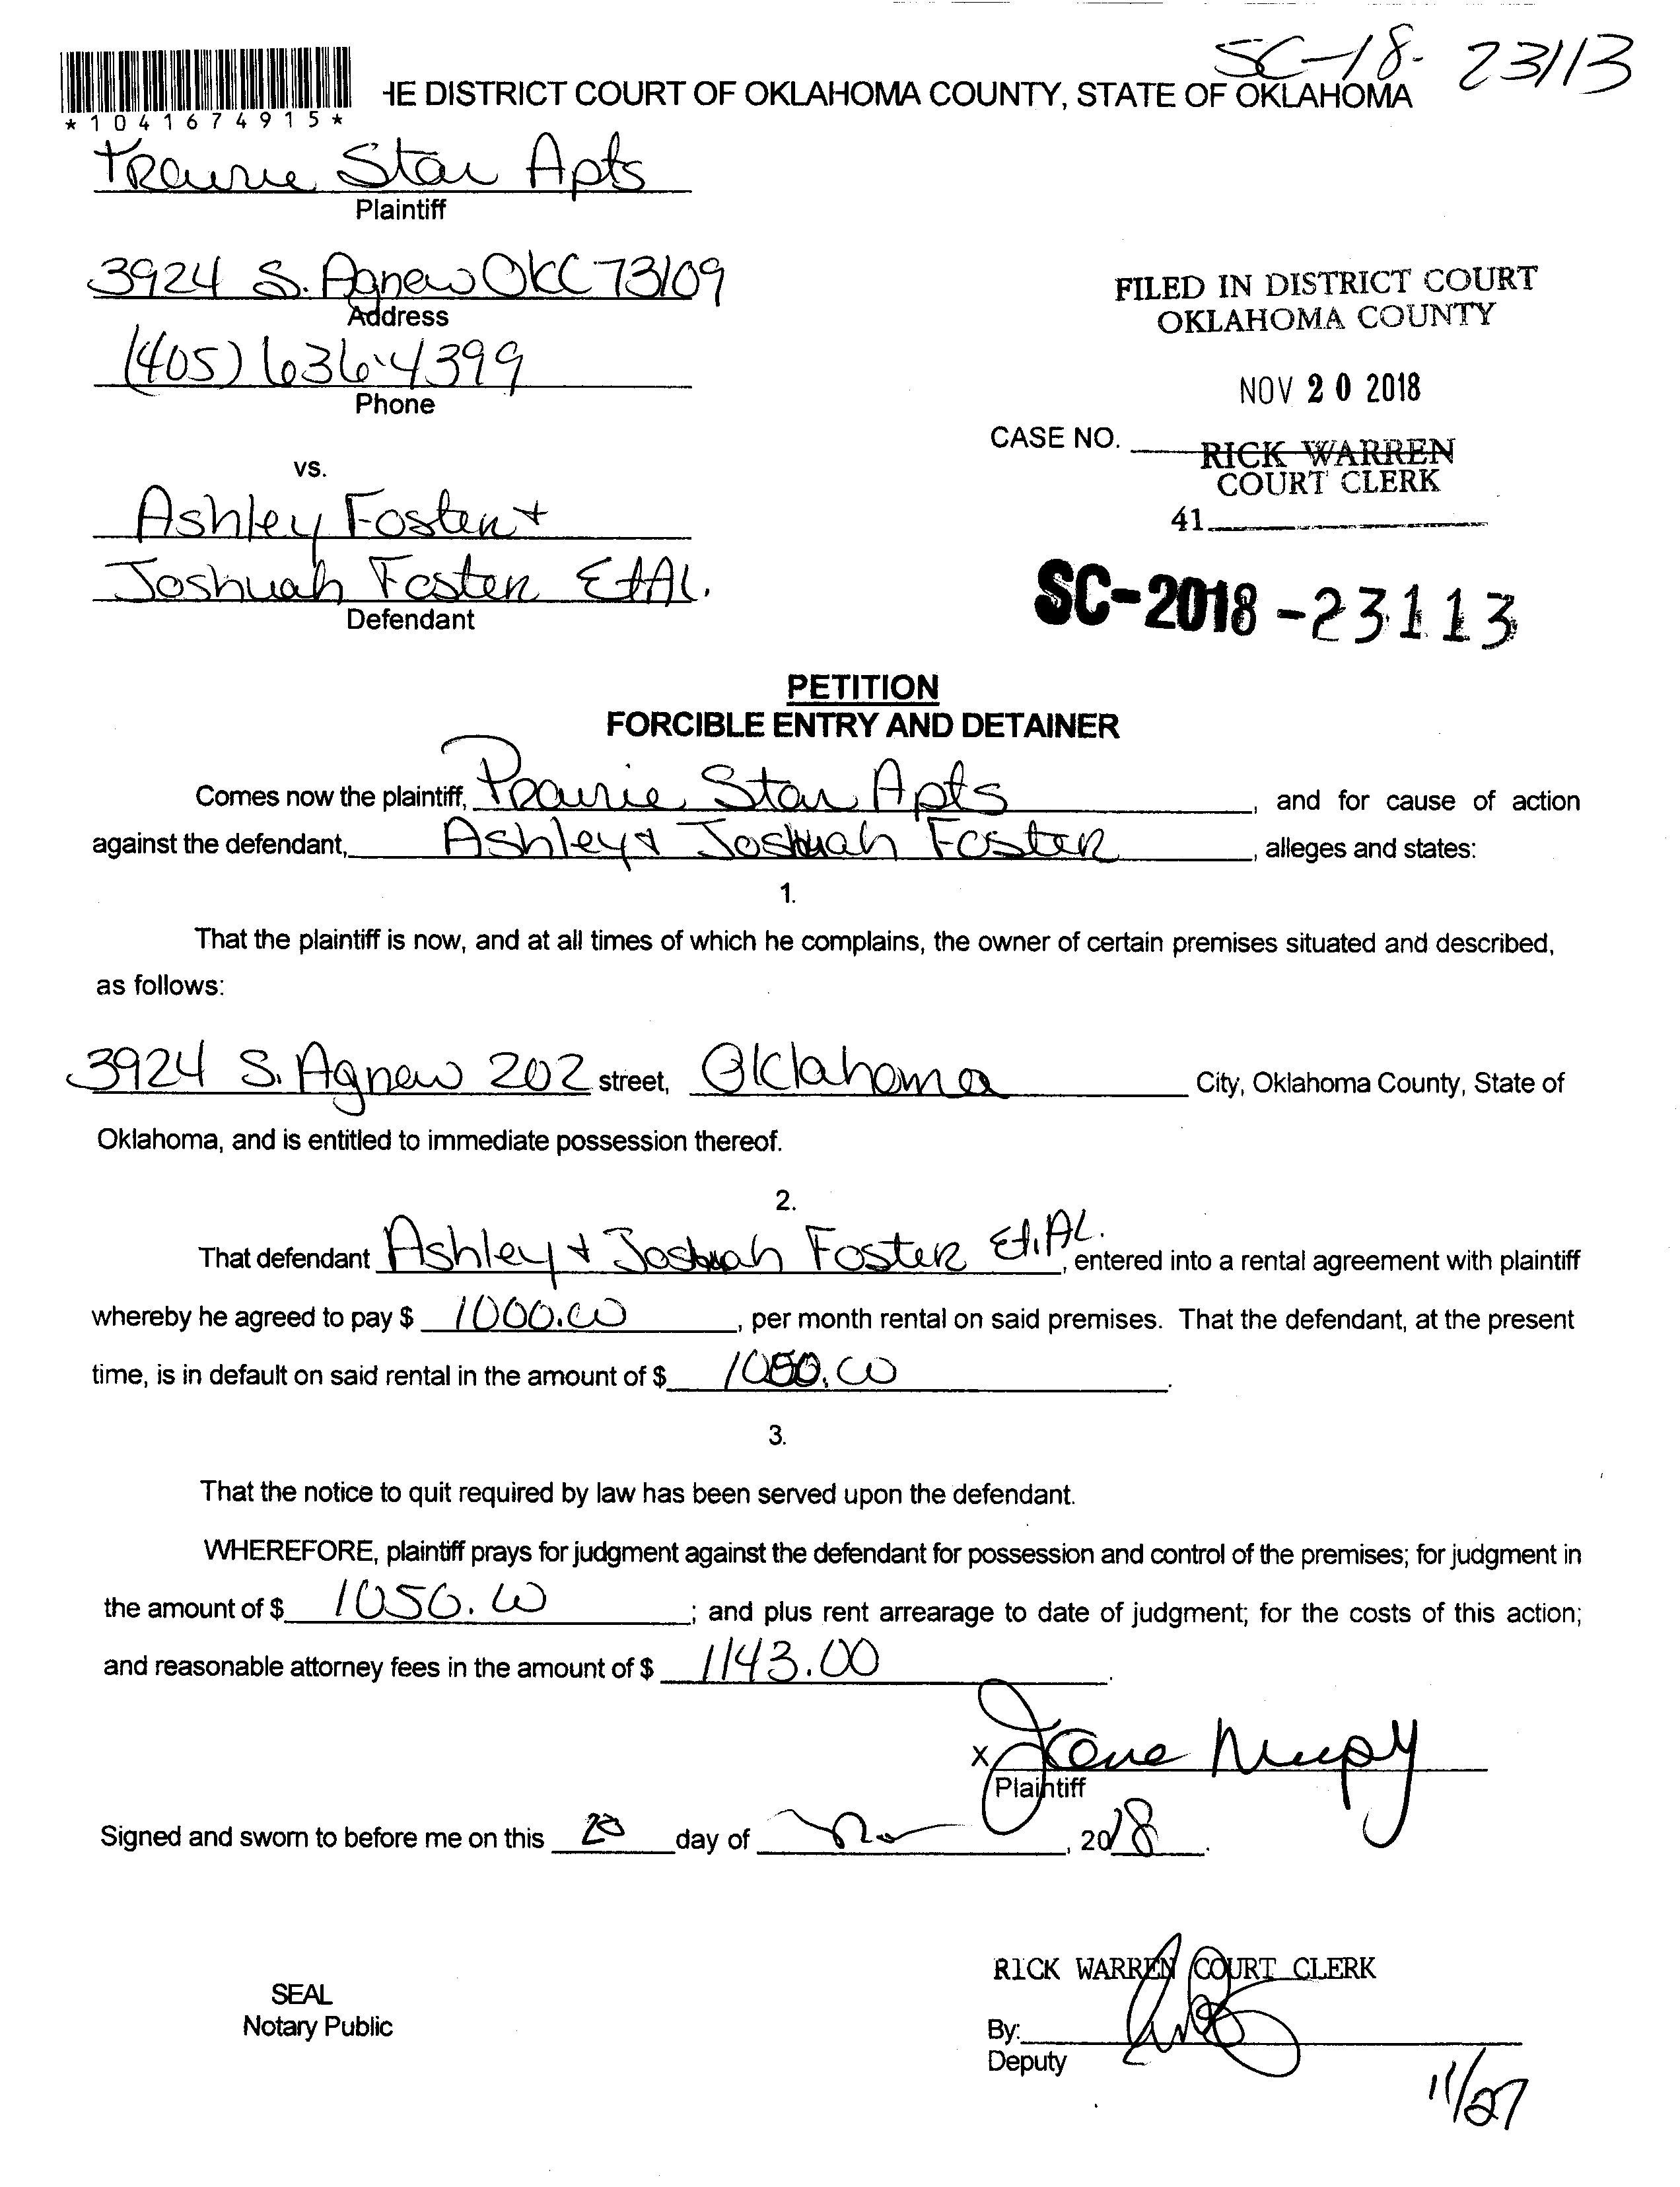 SC-18-23113
HE DISTRICT COURT OF OKLAHOMA COUNTY, STATE OF OKLAHOMA
*1041674915*
Prairie Star Apts
Plaintiff
3924 S. Agnew OKC 73109
Address
(405) 636-4399
Phone
FILED IN DISTRICT COURT
OKLAHOMA COUNTY
NOV 20 2018
CASE NO.
RICK WARREN
COURT CLERK
41
vs.
Ashley Foster +
Joshuah Foster Et Al.
Defendant
SC-2018-23113
PETITION
FORCIBLE ENTRY AND DETAINER
Comes now the plaintiff, Prairie Star Apts, and for cause of action
against the defendant, Ashley + Joshuah Foster, alleges and states:
1.
That the plaintiff is now, and at all times of which he complains, the owner of certain premises situated and described,
as follows:
3924 S. Agnew 202 street, Oklahoma City, Oklahoma County, State of
Oklahoma, and is entitled to immediate possession thereof.
2.
That defendant Ashley + Joshuah Foster Et. AL., entered into a rental agreement with plaintiff
whereby he agreed to pay $ 1000.00, per month rental on said premises. That the defendant, at the present
time, is in default on said rental in the amount of $ 1050.00.
3.
That the notice to quit required by law has been served upon the defendant.
WHEREFORE, plaintiff prays for judgment against the defendant for possession and control of the premises; for judgment in
the amount of $ 1050.00; and plus rent arrearage to date of judgment; for the costs of this action;
and reasonable attorney fees in the amount of $ 1143.00.
X
Plaintiff
Signed and sworn to before me on this 20 day of , 2018.
SEAL
Notary Public
RICK WARREN COURT CLERK
By:
Deputy
11/27